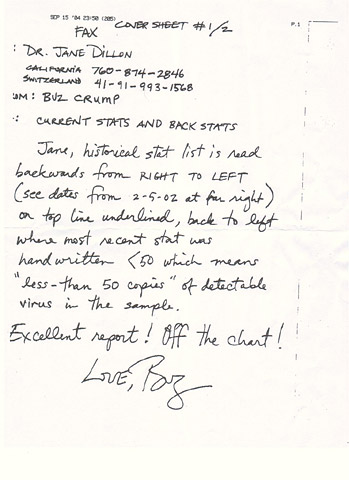 SEP 15 '04 23:50 (205) P.1
FAX COVER SHEET #1/2
: DR. JANE DILLON
CALIFORNIA 760-874-2846
SWITZERLAND 41-91-993-1568
OM: BUZ CRUMP
: CURRENT STATS AND BACK STATS
Jane, historical stat list is read
backwards from RIGHT TO LEFT
(see dates from 2-5-02 at far right)
on top line underlined, back to left
where most recent stat was
handwritten <50 which means
"less-than 50 copies" of detectable
virus in the sample.
Excellent report! Off the chart!
LOVE, Buz